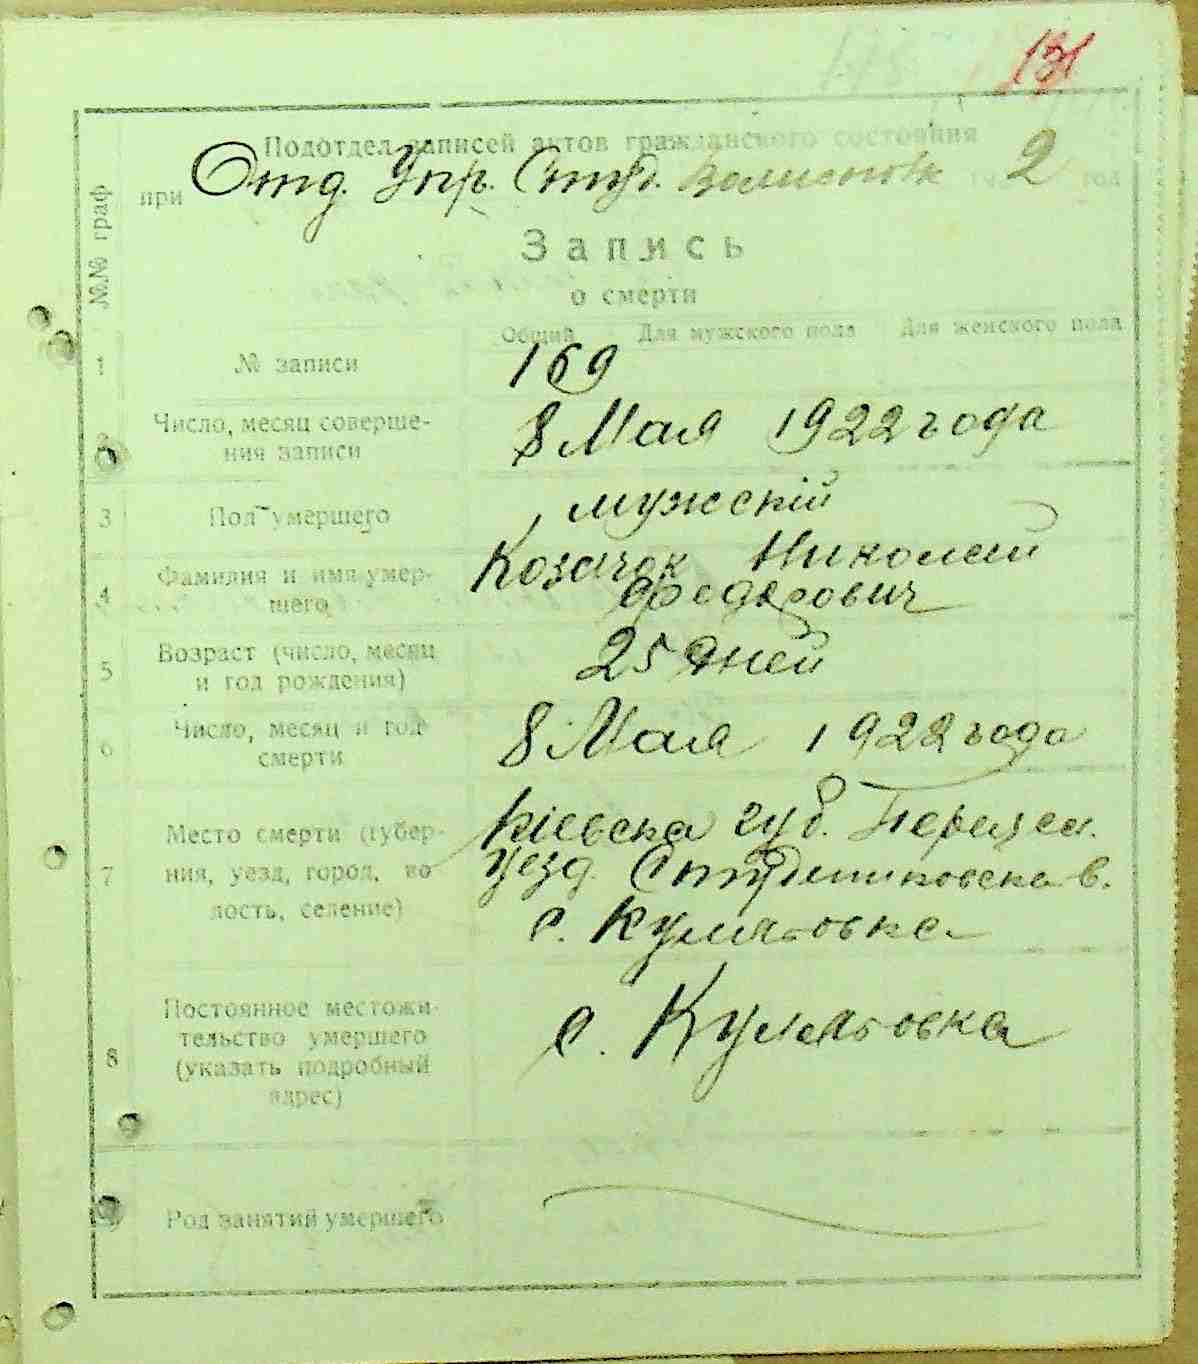 131
Подотдел записей актов гражданского состояния
при Отд. Упр. Студ. Волисполк 192 2 год
№№ граф
Запись
о смерти
Общий Для мужского пола Для женского пола
1 № записи 169
2 Число, месяц соверше-
ния записи 8 Мая 1922 года
3 Пол умершего мужскій
4 Фамилия и имя умер-
шего Козачок Николай
Федорович
5 Возраст (число, месяц
и год рождения) 25 дней
6 Число, месяц и год
смерти 8 Мая 1922 года
7 Место смерти (губер-
ния, уезд, город, во
лость, селение) Кіевска губ. Переясл.
уезд. Студениковска в.
с. Кулябовка
8 Постоянное местожи-
тельство умершего
(указать подробный
адрес) с. Кулябовка
9 Род занятий умершего